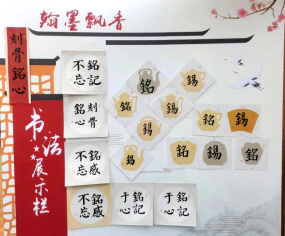 翰墨飄香
刻骨銘心
书法展示栏
銘記
不忘
刻骨
銘心
銘感
不忘
銘感
不忘
銘記
于心
銘記
于心
銘
錫
銘
錫
錫
錫
銘
錫
錫
銘
錫
銘